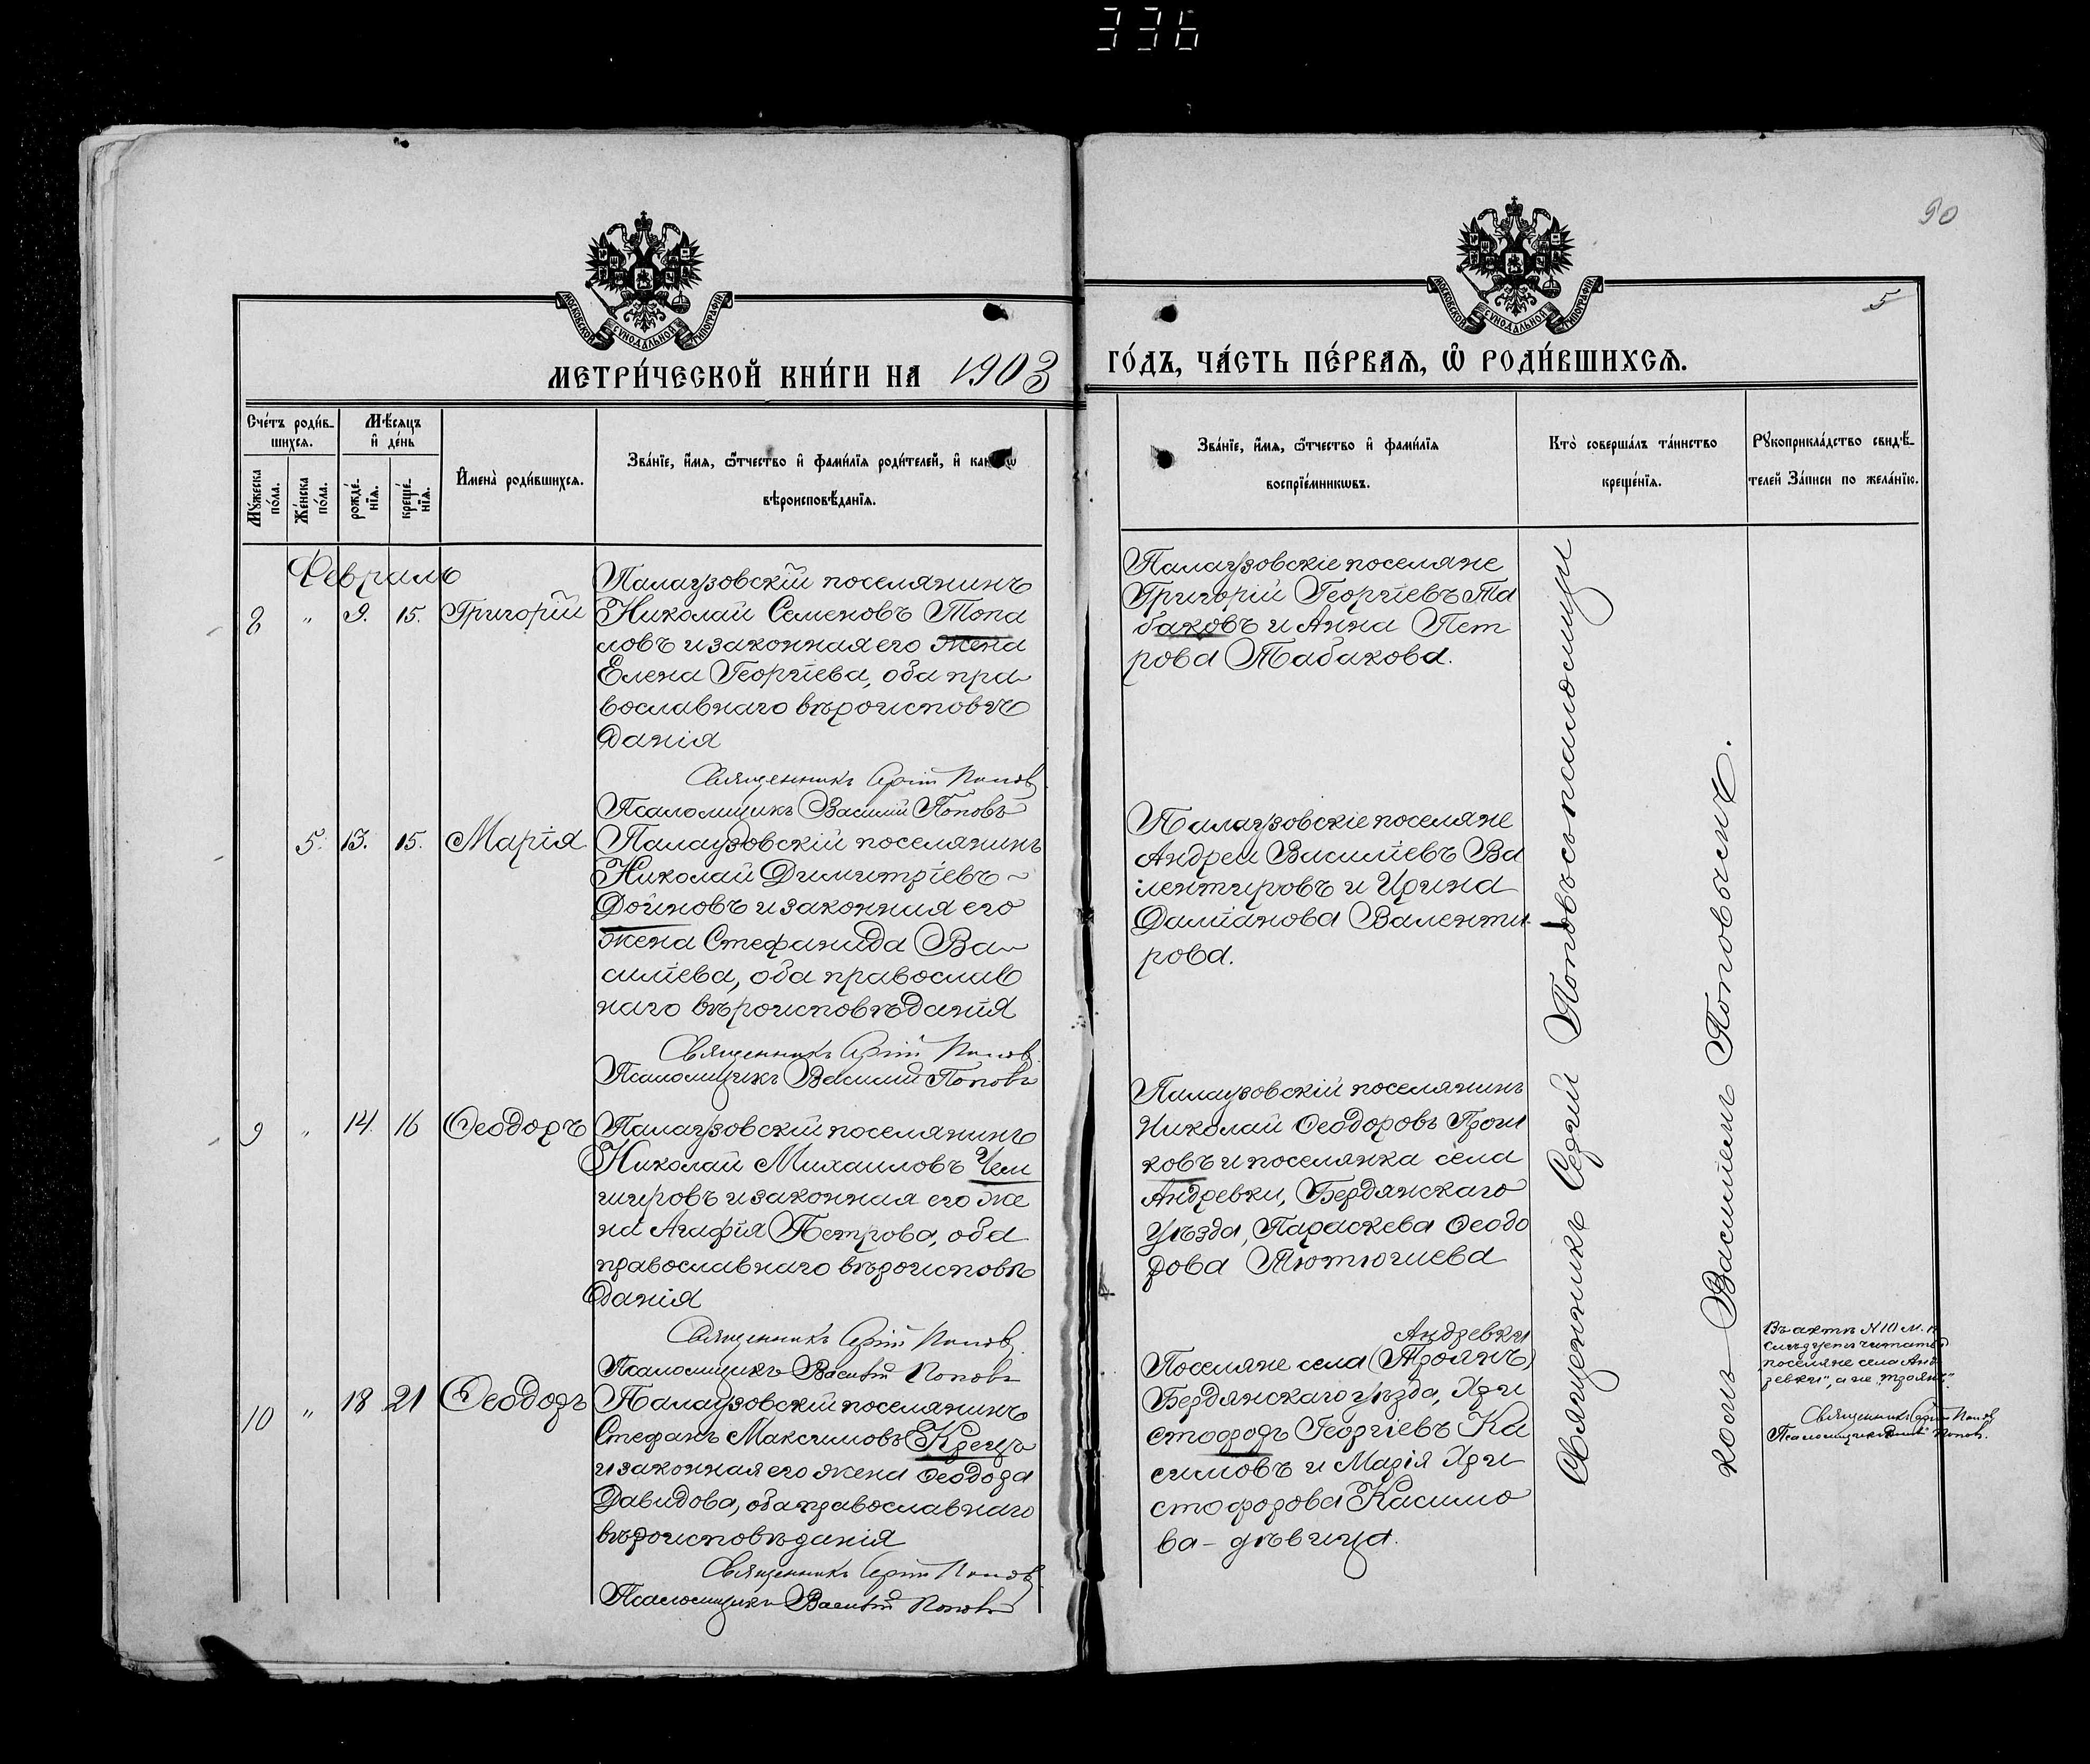 336
90
5
МОСКОВСКОЙ СѴНОДАЛЬНОЙ ТИПОГРАФІИ
МОСКОВСКОЙ СѴНОДАЛЬНОЙ ТИПОГРАФІИ
МЕТРИ́ЧЕСКОЙ КНИ́ГИ НА 1903 ГО́ДЪ, ЧА́СТЬ ПЕ́РВАѦ, Ѿ РОДИ́ВШИХСѦ.
Сче́тъ роди́в-
шихсѧ.
Мꙋжеска по́ла.
Же́нска по́ла.
Мѣ́сѧцъ
и҆ де́нь
рожде́-
нїѧ.
креще́-
нїѧ.
И҆мена̀ роди́вшихсѧ.
Зва́нїе, и҆́мѧ, ѻ҆́тчество и҆ фами́лїѧ роди́телей, и҆
вѣроисповѣ́данїѧ.
Зва́нїе, и҆́мѧ, ѻ҆́тчество и҆ фами́лїѧ
воспрїе́мникѡвъ.
Кто̀ соверша́лъ та́инство
креще́нїѧ.
Рꙋкоприкла́дство свидѣ́-
телей За́писи по жела́нїю.
Февраль
8 " 9. 15. Григорій
Палаузовскій поселянинъ
Николай Семеновъ Топа
ловъ и законная его жена
Елена Георгіева, оба пра-
вославнаго вѣроисповѣ
данія
Священникъ Сергій Поповъ
Псаломщикъ Василій Поповъ
Палаузовскіе поселяне
Григорій Георгіевъ Та
баковъ и Анна Пет
рова Табакова.
5. 13. 15. Марія
Палаузовскій поселянинъ
Николай Димитріевъ -
Дойновъ и законная его
жена Стефанида Ва-
силіева, оба православ
наго вѣроисповѣданія
Священникъ Сергій Поповъ
Псаломщикъ Василій Поповъ
Палаузовскіе поселяне
Андрей Василіевъ Ва
лентировъ и Ирина
Даміанова Валенти-
рова.
9 " 14. 16 Ѳеодоръ
Палаузовскій поселянинъ
Николай Михаиловъ Чем
шировъ и законная его же
на Агафія Петрова, оба
православнаго вѣроисповѣ
данія
Священникъ Сергій Поповъ
Псаломщикъ Василій Поповъ
Палаузовскій поселянинъ
Николай Ѳеодоровъ
ковъ и поселянка села
Андревки, Бердянскаго
уѣзда, Параскева Ѳеодо
рова Тютюгиева
10 " 18 21 Ѳеодоръ
Палаузовскій поселянинъ
Стефанъ Максимовъ Крецъ
и законная его жена Ѳеодора
Давидова, оба православнаго
вѣроисповѣданія
Священникъ Сергій Поповъ
Псаломщикъ Василій Поповъ
Андревки
Поселяне села (Троянъ)
Бердянскаго уѣзда, Хри
стофоръ Георгіевъ Ка
симовъ и Марія Хри
стофорова Касимо
ва - дѣвица.
Священникъ Сергій Поповъ съ псаломщи
комъ Василіемъ Поповымъ.
Въ актѣ №10 м. п.
слѣдуетъ читать
поселяне села Анд
ревки", а не "Троянъ".
Священникъ Сергій Поповъ
Псаломщикъ Василій Поповъ.